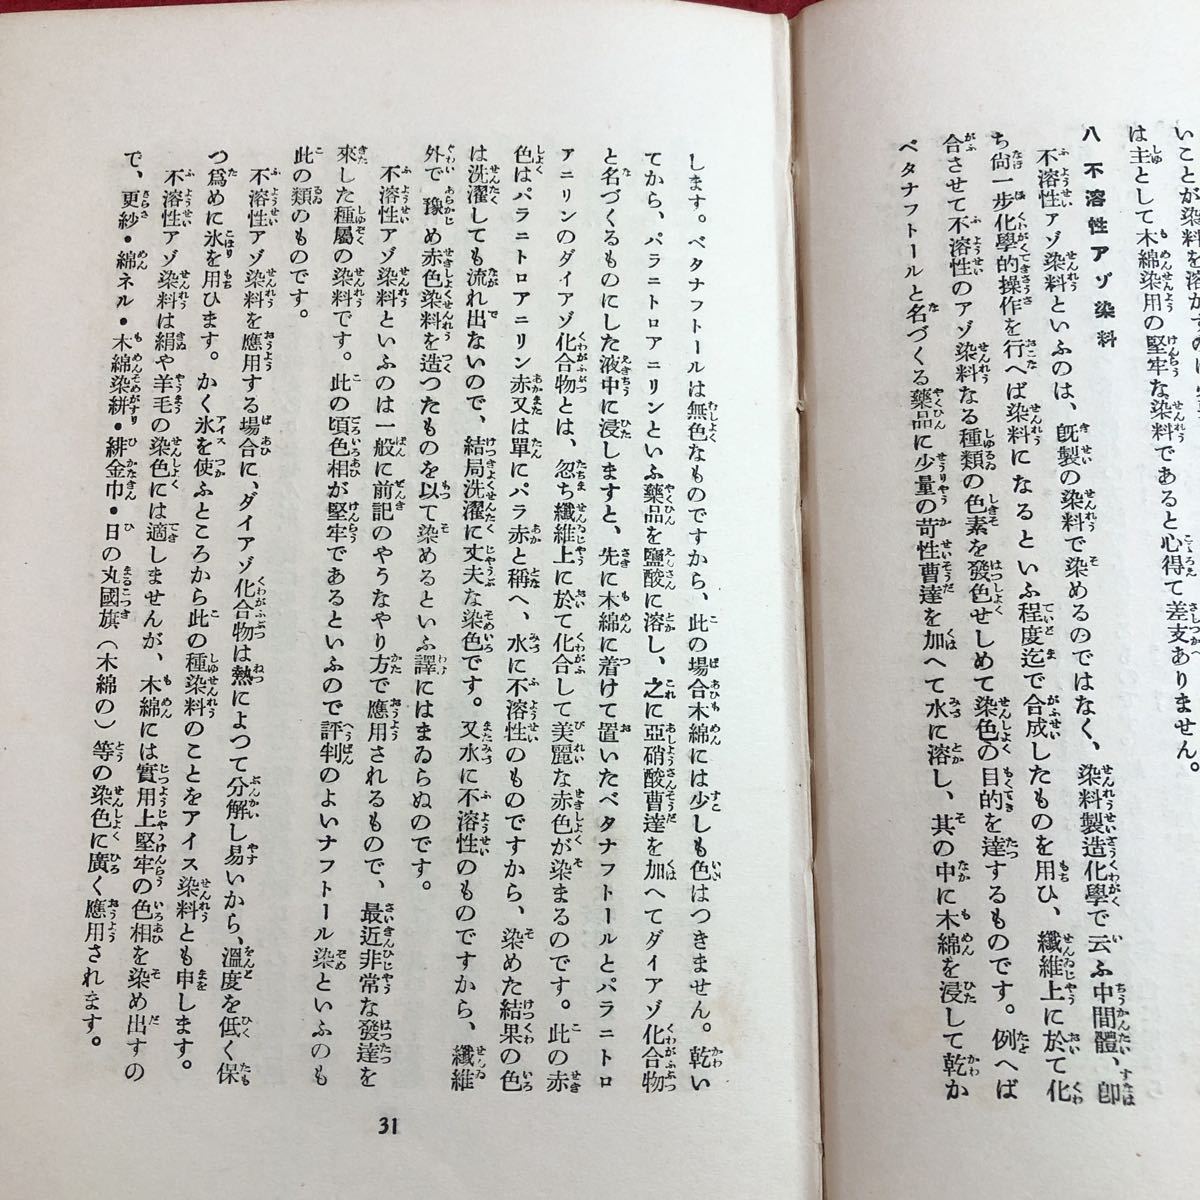 いことが染料を溶かすの
は主として木綿染用の堅牢な染料であると心得て差支ありません。
八 不溶性アゾ染料
不溶性アゾ染料といふのは、既製の染料で染めるのではなく、染料製造化學で云ふ中間體、卽
ち尙一步化學的操作を行へば染料になるといふ程度迄で合成したものを用ひ、纖維上に於て化
合させて不溶性のアゾ染料なる種類の色素を發色せしめて染色の目的を達するものです。例へば
ベタナフトールと名づくる藥品に少量の苛性曹達を加へて水に溶し、其の中に木綿を浸して乾か
します。ベタナフトールは無色なものですから、此の場合木綿には少しも色はつきません。乾い
てから、パラニトロアニリンといふ藥品を鹽酸に溶し、之に亞硝酸曹達を加へてダイアゾ化合物
と名づくるものにした液中に浸しますと、先に木綿に着けて置いたベタナフトールとパラニトロ
アニリンのダイアゾ化合物とは、忽ち纖維上に於て化合して美麗な赤色が染まるのです。此の赤
色はパラニトロアニリン赤又は單にパラ赤と稱へ、水に不溶性のものですから、染めた結果の色
は洗濯しても流れ出ないので、結局洗濯に丈夫な染色です。又水に不溶性のものですから、纖維
外で豫め赤色染料を造つたものを以て染めるといふ譯にはまゐらぬのです。
不溶性アゾ染料といふのは一般に前記のやうなやり方で應用されるもので、最近非常な發達を
來した種屬の染料です。此の頃色相が堅牢であるといふので評判のよいナフトール染といふのも
此の類のものです。
不溶性アゾ染料を應用する場合に、ダイアゾ化合物は熱によつて分解し易いから、溫度を低く保
つ爲めに氷を用ひます。かく氷を使ふところから此の種染料のことをアイス染料とも申します。
不溶性アゾ染料は絹や羊毛の染色には適しませんが、木綿には實用上堅牢の色相を染め出すの
で、更紗・綿ネル・木綿染絣・緋金巾・日の丸國旗（木綿の）等の染色に廣く應用されます。
31